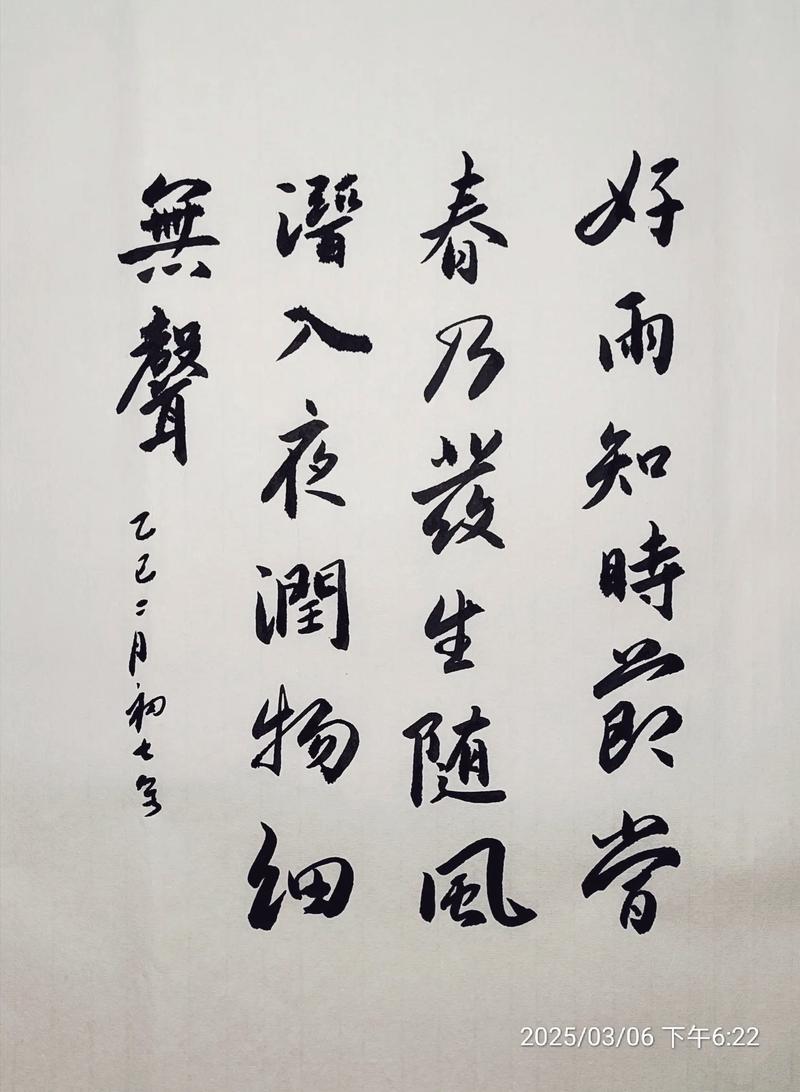 好雨知時節當
春乃發生随風
潛入夜潤物细
無聲
乙巳二月初七
2025/03/06 下午6:22